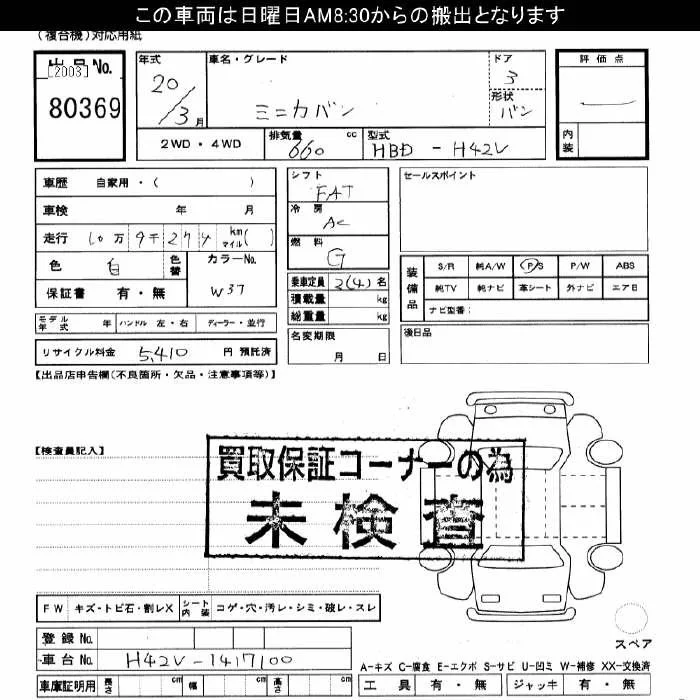 この車両は日曜日AM8:30からの搬出となります
(複合機)対応用紙
出品No.
[2003]
80369
年式
20/3月
車名・グレード
ミニカバン
ドア
3
形状
バン
評価点
内装
2WD・4WD
排気量 660 cc
型式 HBD-H42V
車歴 自家用・( )
車検 年 月
走行 10万9千274 km マイル( )
色 白 色替
カラーNo.
W37
保証書 有・無
シフト
FAT
冷房
AC
燃料
G
乗車定員 2(4)名
積載量 kg
総重量 kg
名変期限
月 日
セールスポイント
装備品
S/R 純A/W P/S P/W ABS
純TV 純ナビ 革シート 外ナビ エアB
ナビ型番:
後日品
モデル年式 年 ハンドル 左・右 ディーラー・並行
リサイクル料金 5,410 円 預託済
【出品店申告欄(不良箇所・欠品・注意事項等)】
【検査員記入】
買取保証コーナーの為
未検査
FW キズ・トビ石・割レX シート内装 コゲ・穴・汚レ・シミ・破レ・スレ
登録No.
車台No. H42V-1417100
車庫証明用 長さ cm 幅 cm 高さ cm
スペア
A-キズ C-腐食 E-エクボ S-サビ U-凹ミ W-補修 XX-交換済
工具 有・無 ジャッキ 有・無